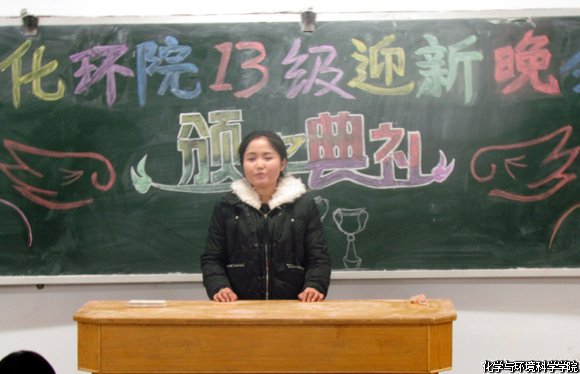 化环院13级迎新晚会
颁奖典礼
化学与环境科学学院